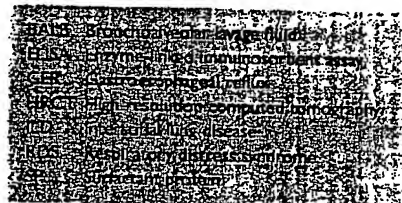 BALF Bronchoalveolar lavage fluid
ELISA Enzyme-linked immunosorbent assay
GER Gastroesophageal reflux
HRCT High-resolution computed tomography
ILD Interstitial lung disease
RDS Respiratory distress syndrome
SP Surfactant protein